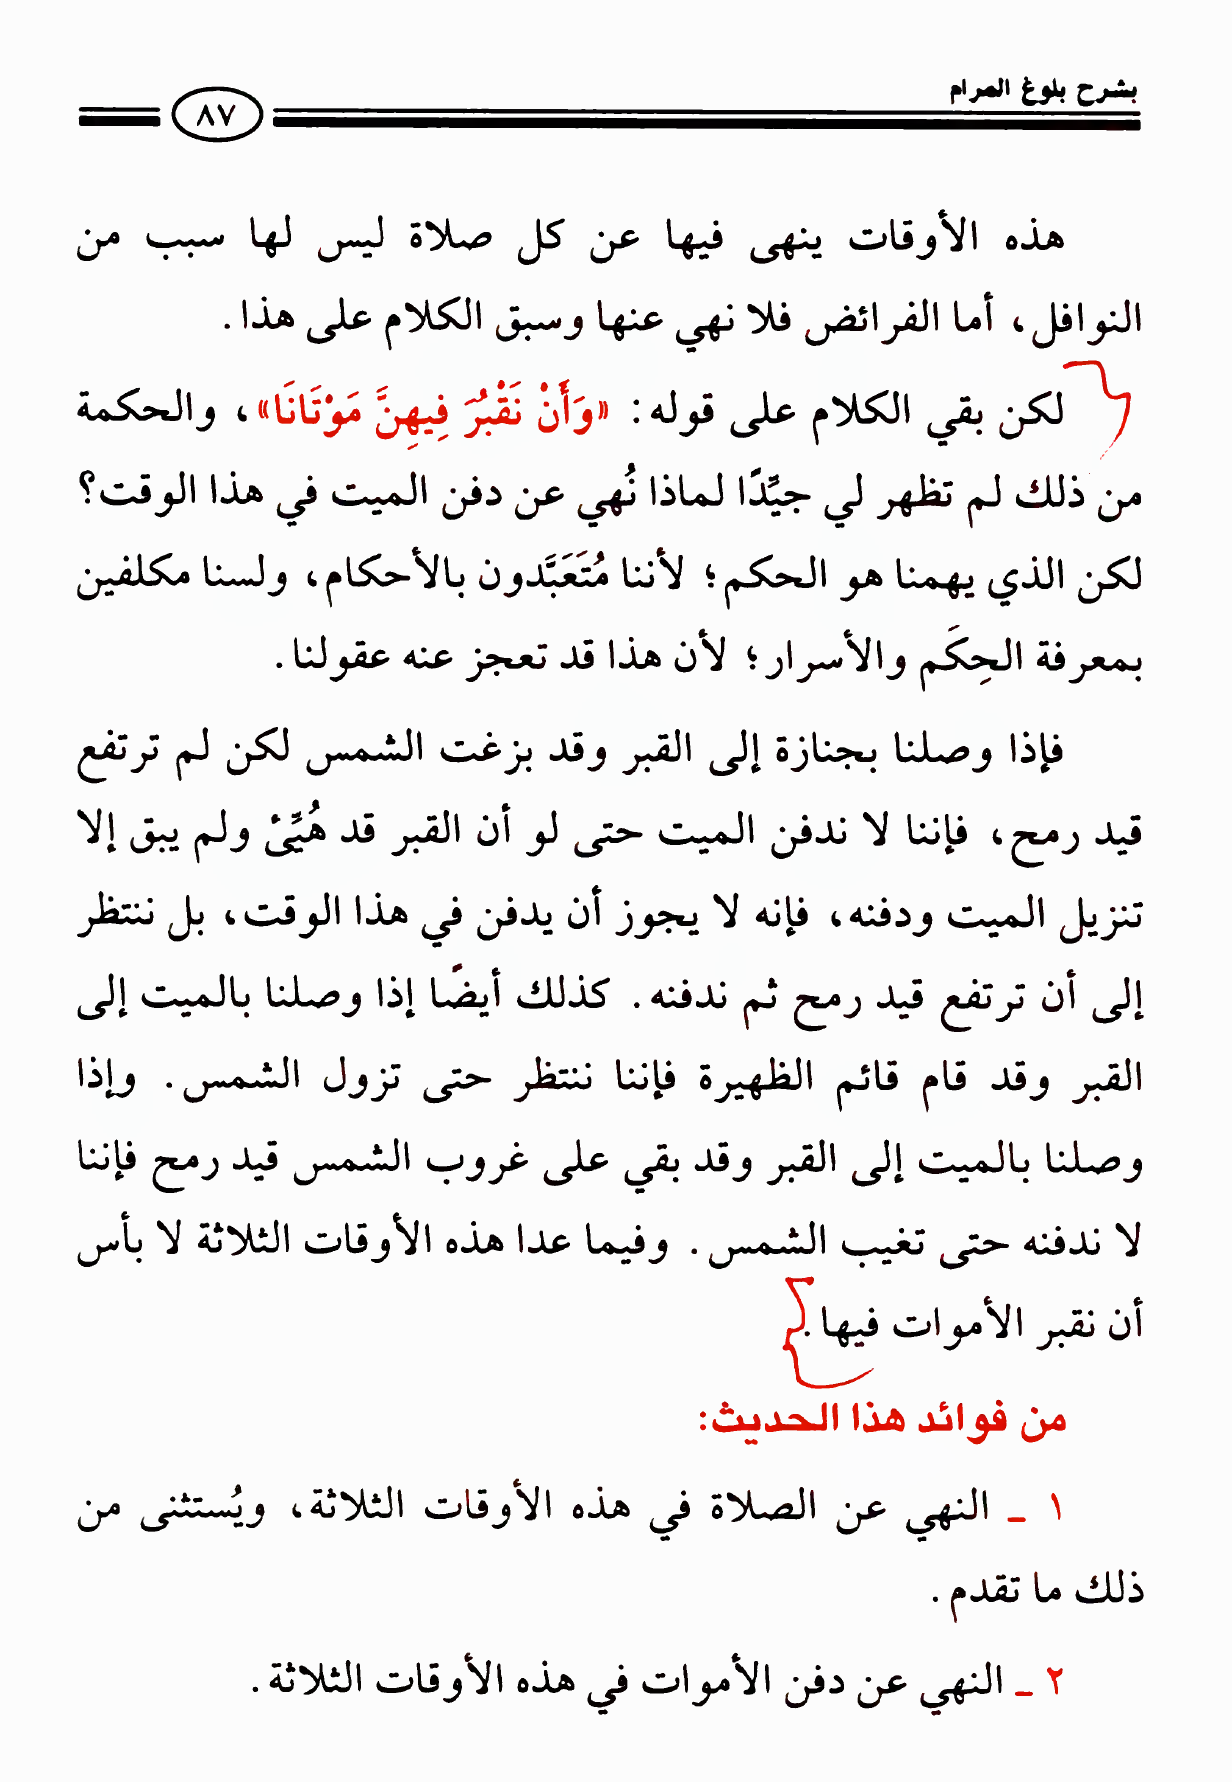 بشرح بلوغ المرام
٨٧
هذه الأوقات ينهى فيها عن كل صلاة ليس لها سبب من
النوافل، أما الفرائض فلا نهي عنها وسبق الكلام على هذا.
لكن بقي الكلام على قوله: «وَأَنْ نَقْبُرَ فِيهِنَّ مَوْتَانَا»، والحكمة
من ذلك لم تظهر لي جيِّدًا لماذا نُهي عن دفن الميت في هذا الوقت؟
لكن الذي يهمنا هو الحكم؛ لأننا مُتَعَبَّدون بالأحكام، ولسنا مكلفين
بمعرفة الحِكَم والأسرار؛ لأن هذا قد تعجز عنه عقولنا.
فإذا وصلنا بجنازة إلى القبر وقد بزغت الشمس لكن لم ترتفع
قيد رمح، فإننا لا ندفن الميت حتى لو أن القبر قد هُيِّئ ولم يبق إلا
تنزيل الميت ودفنه، فإنه لا يجوز أن يدفن في هذا الوقت، بل ننتظر
إلى أن ترتفع قيد رمح ثم ندفنه. كذلك أيضًا إذا وصلنا بالميت إلى
القبر وقد قام قائم الظهيرة فإننا ننتظر حتى تزول الشمس. وإذا
وصلنا بالميت إلى القبر وقد بقي على غروب الشمس قيد رمح فإننا
لا ندفنه حتى تغيب الشمس. وفيما عدا هذه الأوقات الثلاثة لا بأس
أن نقبر الأموات فيها.
من فوائد هذا الحديث:
١ ـ النهي عن الصلاة في هذه الأوقات الثلاثة، ويُستثنى من
ذلك ما تقدم.
٢ ـ النهي عن دفن الأموات في هذه الأوقات الثلاثة.